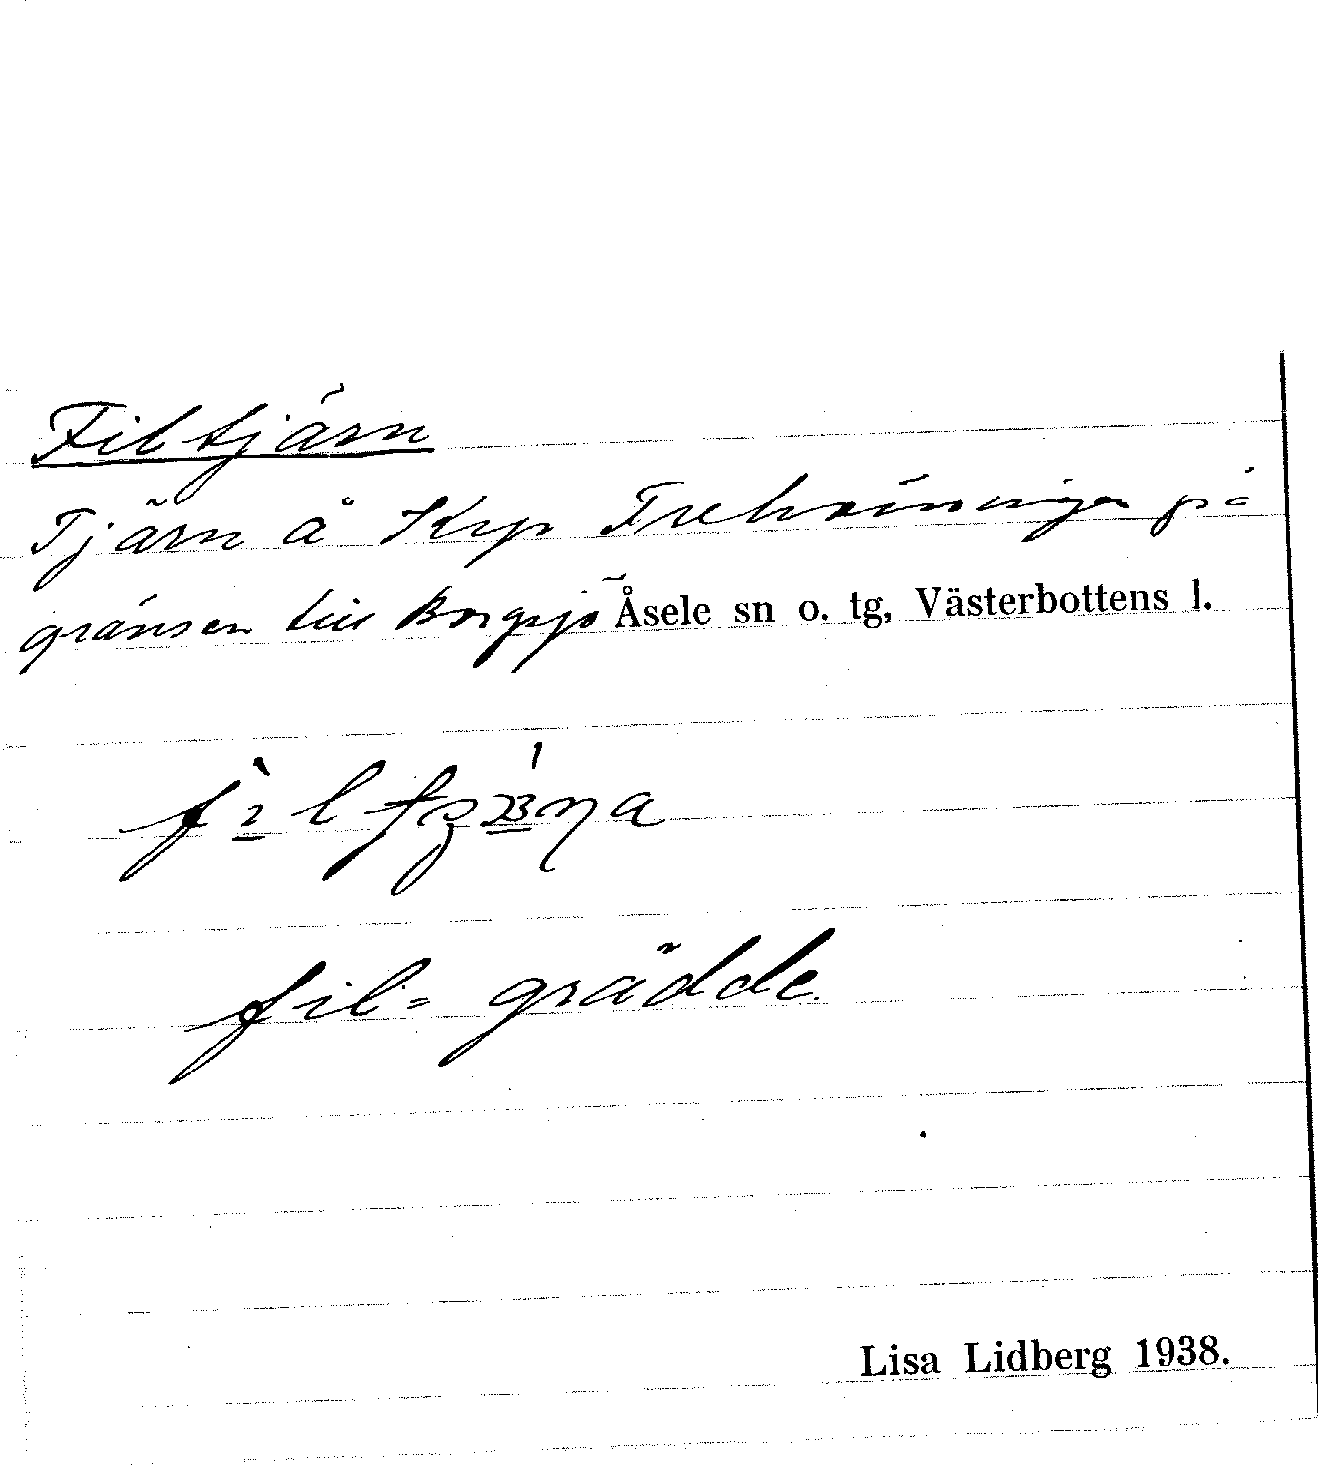 Filtjärn
Tjärn å Krp Trehörningen på
gränsen till Borgsjö Åsele sn o. tg, Västerbottens l.
fil = grädde.
Lisa Lidberg 1938.